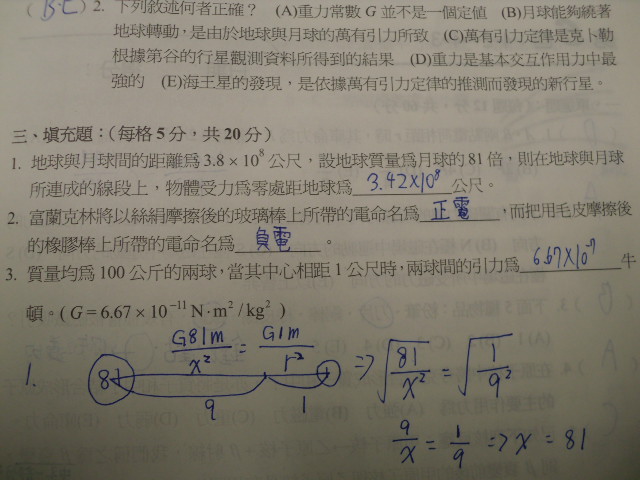 (B.E) 2. 下列敘述何者正確？ (A)重力常數 G 並不是一個定值 (B)月球能夠繞著
地球轉動，是由於地球與月球的萬有引力所致 (C)萬有引力定律是克卜勒
根據第谷的行星觀測資料所得到的結果 (D)重力是基本交互作用力中最
強的 (E)海王星的發現，是依據萬有引力定律的推測而發現的新行星。
三、填充題：（每格 5 分，共 20 分）
1. 地球與月球間的距離爲 3.8 × 10⁸ 公尺，設地球質量爲月球的 81 倍，則在地球與月球
所連成的線段上，物體受力爲零處距地球爲 3.42X10⁸ 公尺。
2. 富蘭克林將以絲絹摩擦後的玻璃棒上所帶的電命名爲 正電 ，而把用毛皮摩擦後
的橡膠棒上所帶的電命名爲 負電 。
3. 質量均爲 100 公斤的兩球，當其中心相距 1 公尺時，兩球間的引力爲 6.67X10⁻⁷ 牛
頓。( G = 6.67 × 10⁻¹¹ N·m² / kg² )
G81m/x² = G1m/r²
1. 81 9 1 1 => √(81/x²) = √(1/9²)
9/x = 1/9 => x = 81